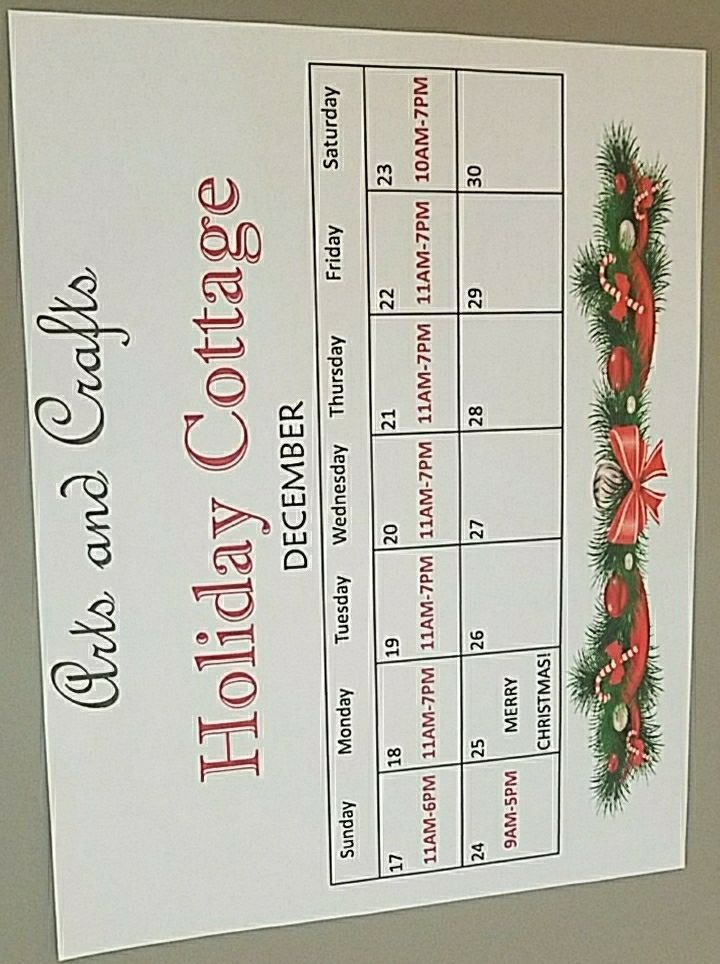 Arts and Crafts
Holiday Cottage
DECEMBER
Sunday Monday Tuesday Wednesday Thursday Friday Saturday
17 18 19 20 21 22 23
11AM-6PM 11AM-7PM 11AM-7PM 11AM-7PM 11AM-7PM 11AM-7PM 10AM-7PM
24 25 26 27 28 29 30
9AM-5PM MERRY
CHRISTMAS!